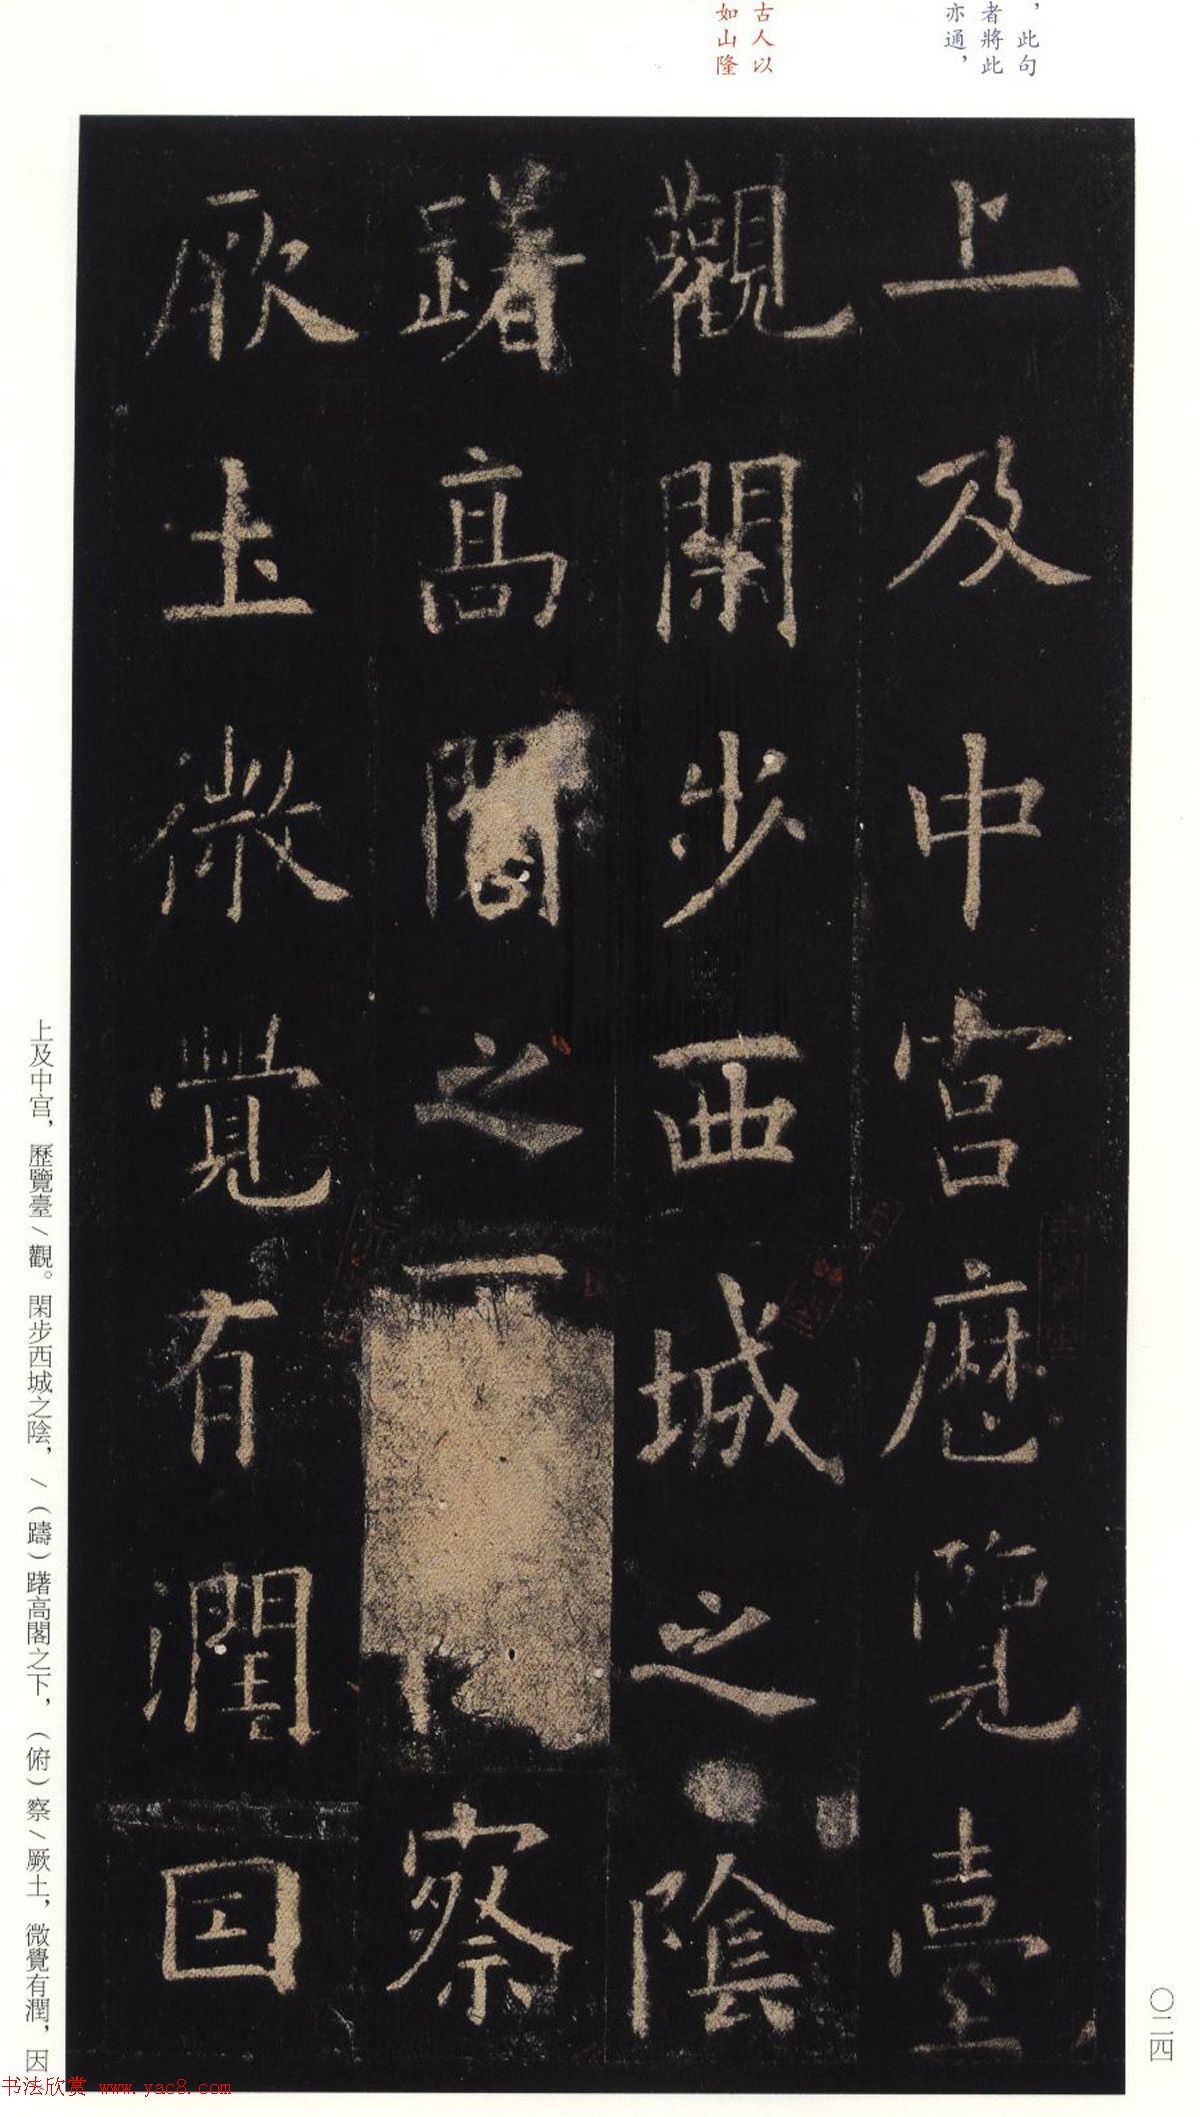 ，此句
者將此
亦通，
古人以
如山隆
上及中宮歷覽臺
觀閑步西城之陰
躇高閣之下 察
厥土微覺有潤因
上及中宮，歷覽臺/觀。閑步西城之陰，/（躊）躇高閣之下，（俯）察/厥土，微覺有潤，因
〇二四
书法欣赏 www.yac8.com